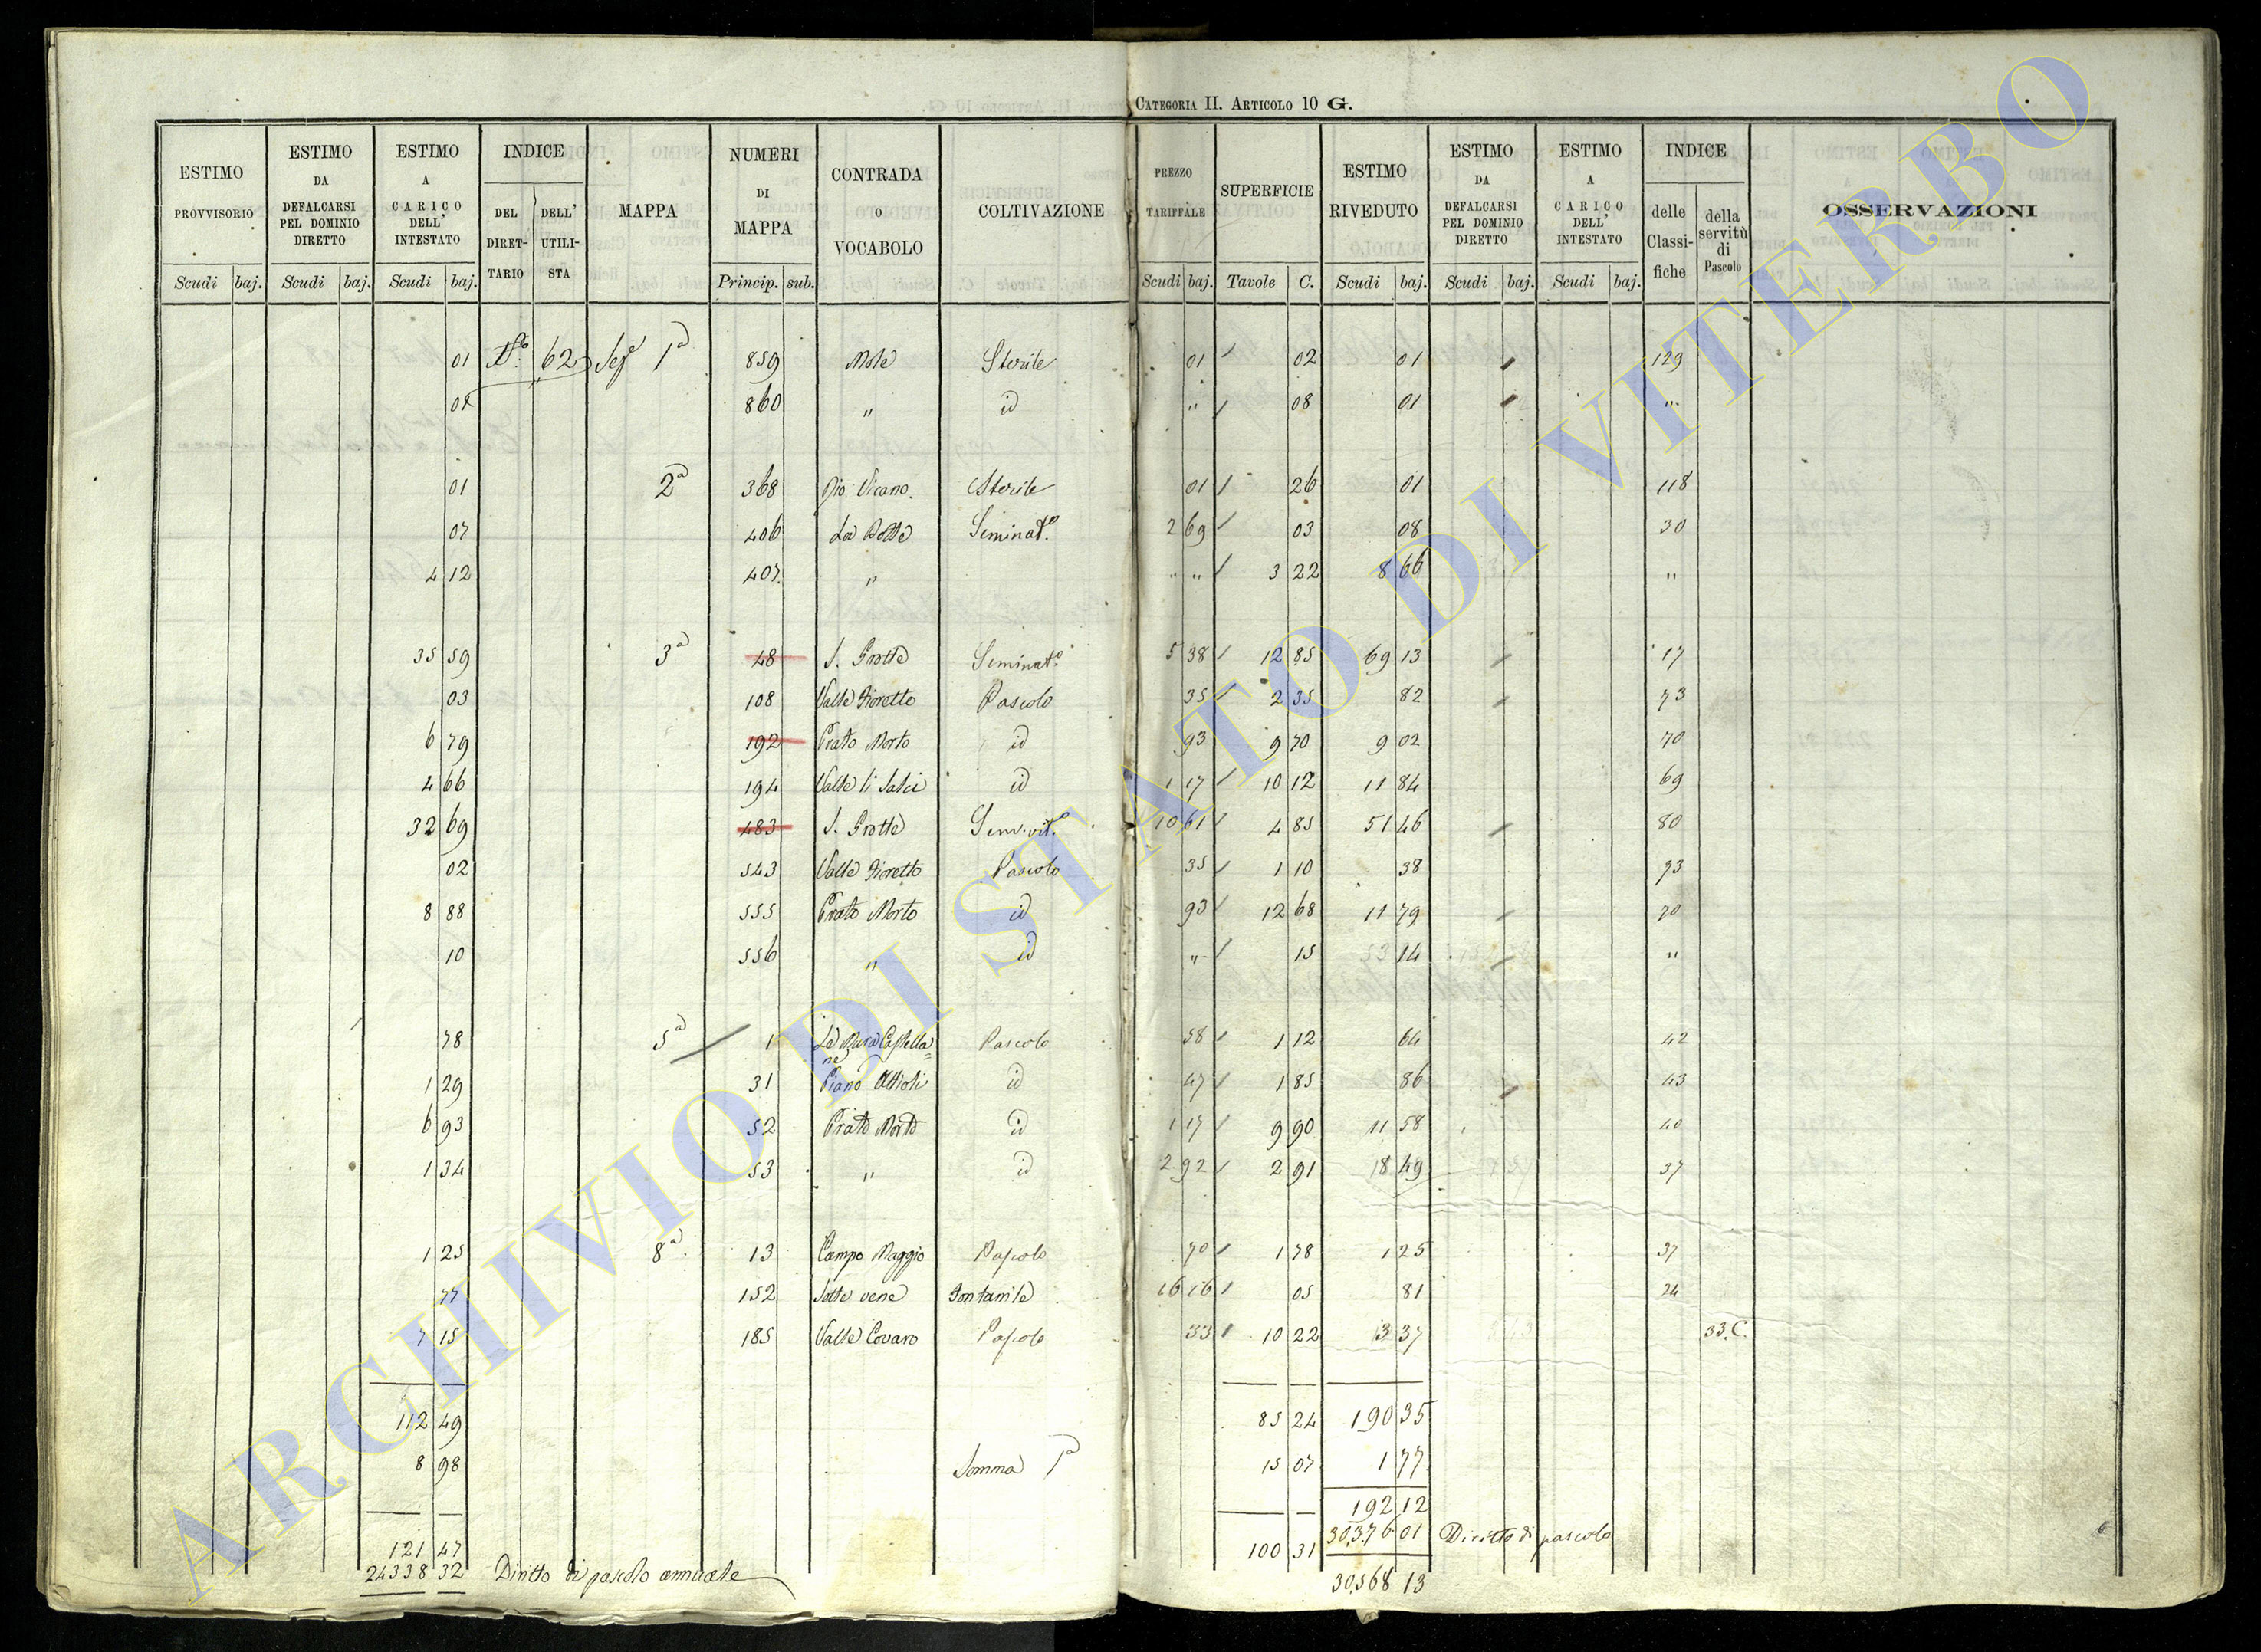 CATEGORIA II. ARTICOLO 10 G.
ESTIMO PROVVISORIO Scudi baj.
ESTIMO DA DEFALCARSI PEL DOMINIO DIRETTO Scudi baj.
ESTIMO A CARICO DELL' INTESTATO Scudi baj.
INDICE DEL DIRETTARIO DELL' UTILISTA
MAPPA
NUMERI DI MAPPA Princip. sub.
CONTRADA O VOCABOLO
COLTIVAZIONE
PREZZO TARIFFALE Scudi baj.
SUPERFICIE Tavole C.
ESTIMO RIVEDUTO Scudi baj.
ESTIMO DA DEFALCARSI PEL DOMINIO DIRETTO Scudi baj.
ESTIMO A CARICO DELL' INTESTATO Scudi baj.
INDICE delle Classifiche della servitù di Pascolo
OSSERVAZIONI
01 62 1a 859 Mole Sterile 01 02 01 129
860 " id " 08 01 "
01 2a 368 Rio Vicano Sterile 01 26 01 118
07 406 La Botte Seminato 2 69 03 08 30
4 12 407 " " " 3 22 8 66 "
35 59 3a 48 S. Grotte Seminato 5 38 12 85 69 13 17
03 108 Valle Fioretto Pascolo 35 2 35 82 73
6 79 192 Prato Morto id 93 9 70 9 02 70
4 66 194 Valle li Salci id 1 17 10 12 11 84 69
32 69 483 S. Grotte Sem. vit.o 10 61 4 85 51 46 80
02 543 Valle Fioretto Pascolo 35 1 10 38 73
8 88 555 Prato Morto id 93 12 68 11 79 70
10 556 " id " 15 14 "
78 5a 1 Le Mura Castella=ne Pascolo 58 1 12 64 42
1 29 31 Piano id 47 1 85 86 43
6 93 52 Prato Morto id 1 17 9 90 11 58 40
1 34 53 " id 2 92 2 91 8 49 37
1 25 8a 13 Campo Maggio Pascolo 70 1 78 1 25 37
77 152 Sotto vene Fontanile 16 16 05 81 24
7 15 185 Valle Covaro Pascolo 33 10 22 3 37 33. C.
112 49 85 24 190 35
8 98 Somma 1a 15 07 1 77
192 12
121 47 100 31 30,376 01 Diritto di pascolo
24338 32 Diritto di pascolo annuale 30,568 13
ARCHIVIO DI STATO DI VITERBO